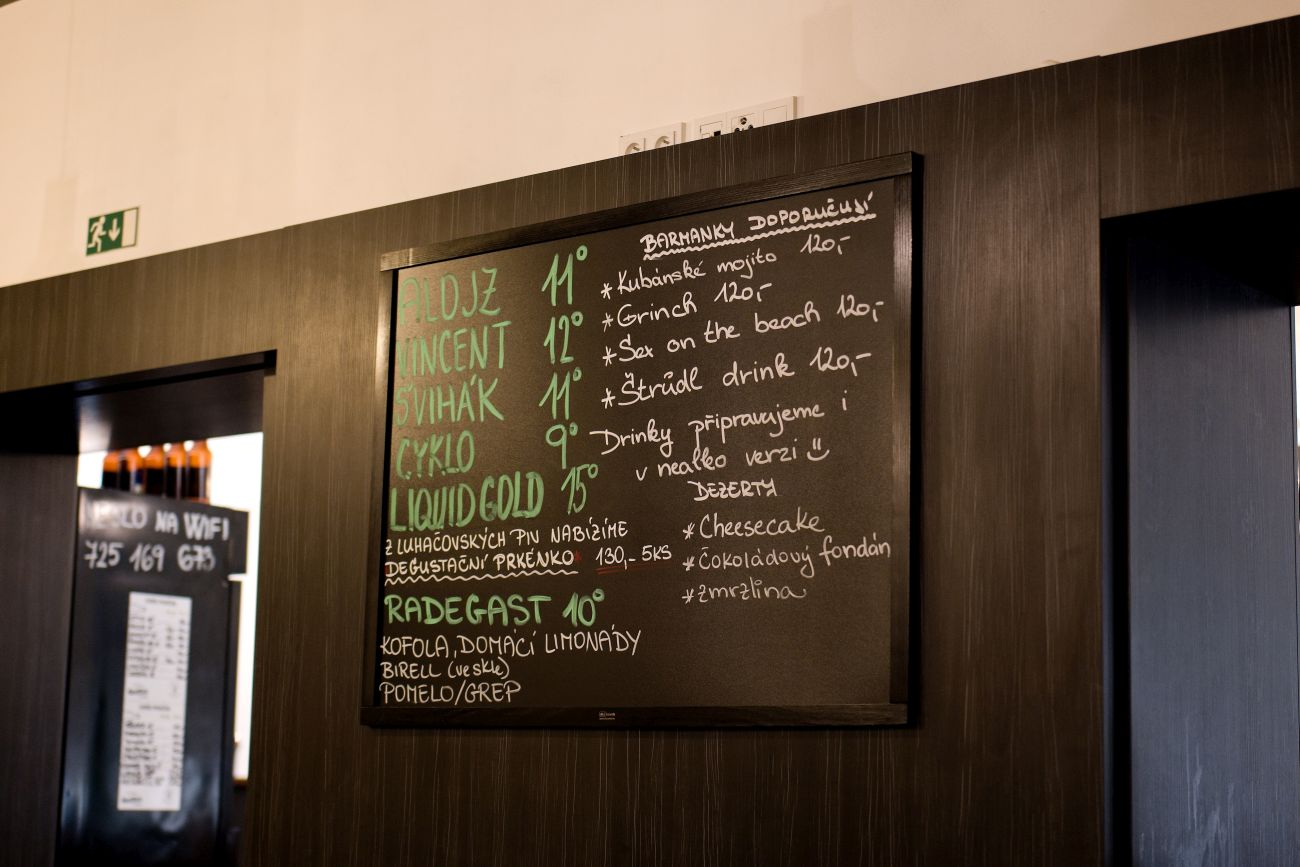 ALOJZ 11°
VINCENT 12°
ŠVIHÁK 11°
CYKLO 9°
LIQUID GOLD 15°
Z LUHAČOVSKÝCH PIV NABÍZÍME
DEGUSTAČNÍ PRKÉNKO* 130,- 5KS
RADEGAST 10°
KOFOLA, DOMÁCÍ LIMONÁDY
BIRELL (ve skle)
POMELO/GREP
BARMANKY DOPORUČUJÍ
*Kubánské mojito 120,-
*Grinch 120,-
*Sex on the beach 120,-
*Štrůdl drink 120,-
Drinky připravujeme i
v nealko verzi
DEZERTY
*Cheesecake
*Čokoládový fondán
*zmrzlina
NA WIFI
725 169 673